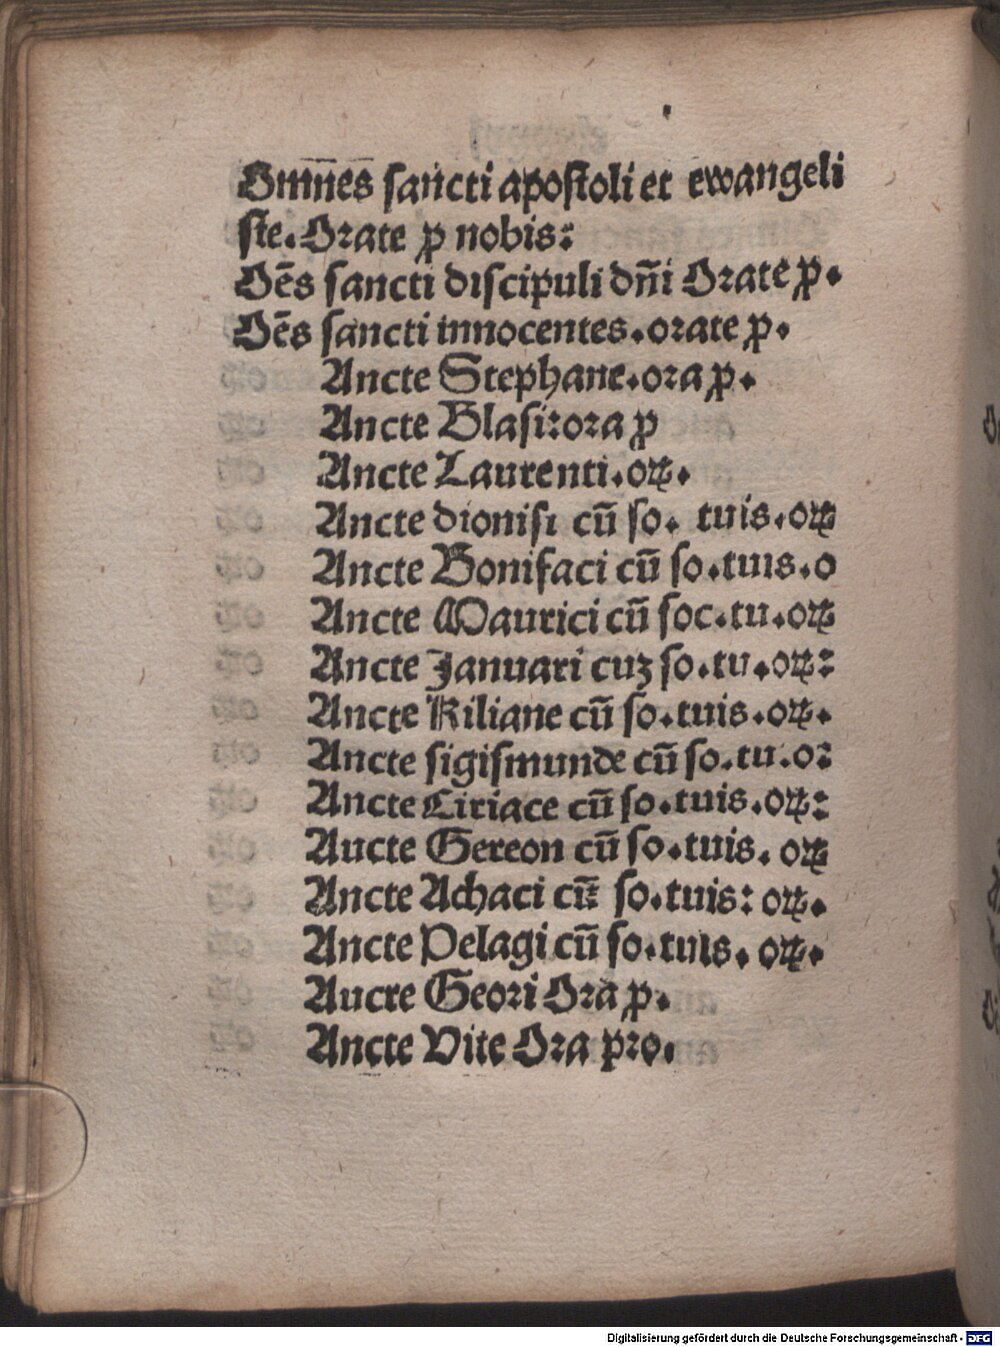 Omnes sancti apostoli et ewangeli
ste. Orate ꝓ nobis:
Oēs sancti discipuli dn̄i Orate ꝓ.
Oēs sancti innocentes. orate ꝓ.
Ancte Stephane. ora ꝓ.
Ancte Blasi: ora ꝓ
Ancte Laurenti. oꝝ.
Ancte dionisi cū so. tuis. oꝝ
Ancte Bonifaci cū so. tuis. o
Ancte Maurici cū soc. tu. oꝝ
Ancte Januari cuꝫ so. tu. oꝝ:
Ancte Kiliane cū so. tuis. oꝝ.
Ancte sigismunde cū so. tu. o:
Ancte Ciriace cū so. tuis. oꝝ:
Aucte Gereon cū so. tuis. oꝝ
Ancte Achaci cū so. tuis: oꝝ.
Ancte Pelagi cū so. tuis. oꝝ.
Aucte Geori Ora ꝓ.
Ancte Vite Ora pro.
Digitalisierung gefördert durch die Deutsche Forschungsgemeinschaft - DFG